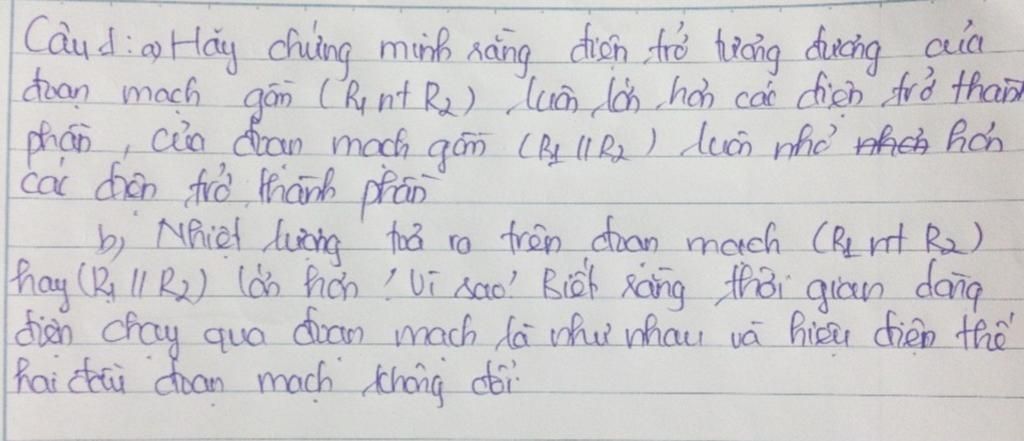 Câu 1: a) Hãy chứng minh rằng điện trở tương đương của
đoạn mạch gồm (R1 nt R2) luôn lớn hơn các điện trở thành
phần, của đoạn mạch gồm (R1 // R2) luôn nhỏ hơn
các điện trở thành phần
b) Nhiệt lượng toả ra trên đoạn mạch (R1 nt R2)
hay (R1 // R2) lớn hơn! Vì sao! Biết rằng thời gian dòng
điện chạy qua đoạn mạch là như nhau và hiệu điện thế
hai đầu đoạn mạch không đổi.